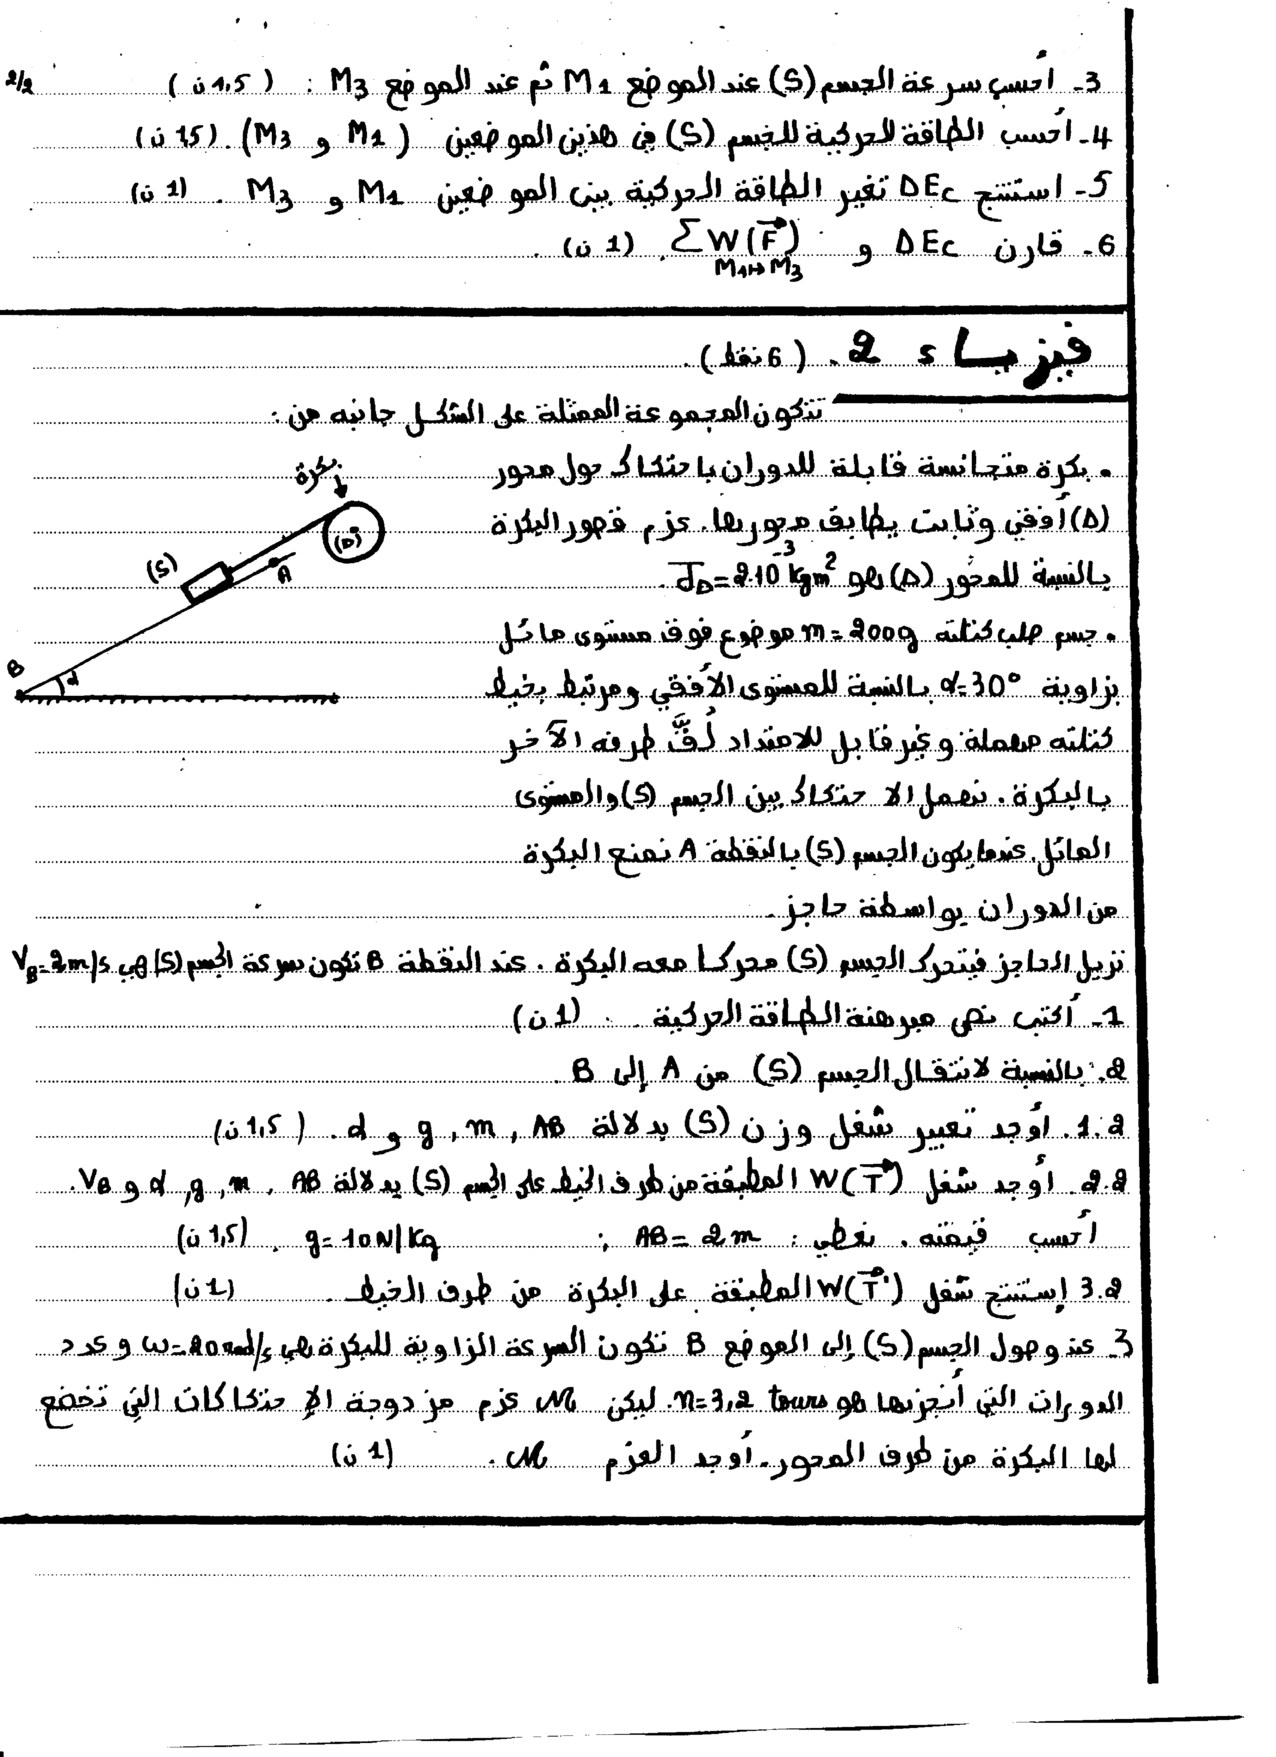 2/2
3- أحسب سرعة الجسم (S) عند الموضع M1 ثم عند الموضع M3 : (1,5 ن)
4- أحسب الطاقة الحركية للجسم (S) في هذين الموضعين (M1 و M3). (1,5 ن)
5- استنتج ΔEc تغير الطاقة الحركية بين الموضعين M1 و M3 . (1 ن)
6- قارن ΔEc و ΣW(F) . (1 ن)
M1→M3
فيزياء 2. (6 نقط).
تتكون المجموعة الممثلة على الشكل جانبه من:
• بكرة متجانسة قابلة للدوران باحتكاك حول محور
(Δ) أفقي وثابت يطابق محورها. عزم قصور البكرة
بالنسبة للمحور (Δ) هو JΔ=2.10⁻³ kg m².
• جسم صلب كتلته m=200g موضوع فوق مستوى مائل
بزاوية α=30° بالنسبة للمستوى الأفقي ومرتبط بخيط
كتلته مهملة وغير قابل للامتداد لُفَّ طرفه الآخر
بالبكرة. نهمل الاحتكاك بين الجسم (S) والمستوى
المائل. عندما يكون الجسم (S) بالنقطة A نمنع البكرة
من الدوران بواسطة حاجز.
بكرة
(Δ)
(S)
A
B
α
نزيل الحاجز فيتحرك الجسم (S) محركا معه البكرة. عند النقطة B تكون سرعة الجسم (S) هي VB=2m/s
1- أكتب نص مبرهنة الطاقة الحركية . (1 ن)
2. بالنسبة لانتقال الجسم (S) من A إلى B .
1.2. أوجد تعبير شغل وزن (S) بدلالة AB , m , g و α. (1,5 ن)
2.2. أوجد شغل W(T) المطبقة من طرف الخيط على الجسم (S) بدلالة AB , m , g , α و VB.
أحسب قيمته. نعطي : AB = 2m ; g=10N/Kg . (1,5 ن)
3.2 إستنتج شغل W(T') المطبقة على البكرة من طرف الخيط. (1 ن)
3- عند وصول الجسم (S) إلى الموضع B تكون السرعة الزاوية للبكرة هي ω=20rad/s وعدد
الدورات التي أنجزتها هو n=3,2 tours. ليكن M عزم مزدوجة الإحتكاكات التي تخضع
لها البكرة من طرف المحور. أوجد العزم M. (1 ن)